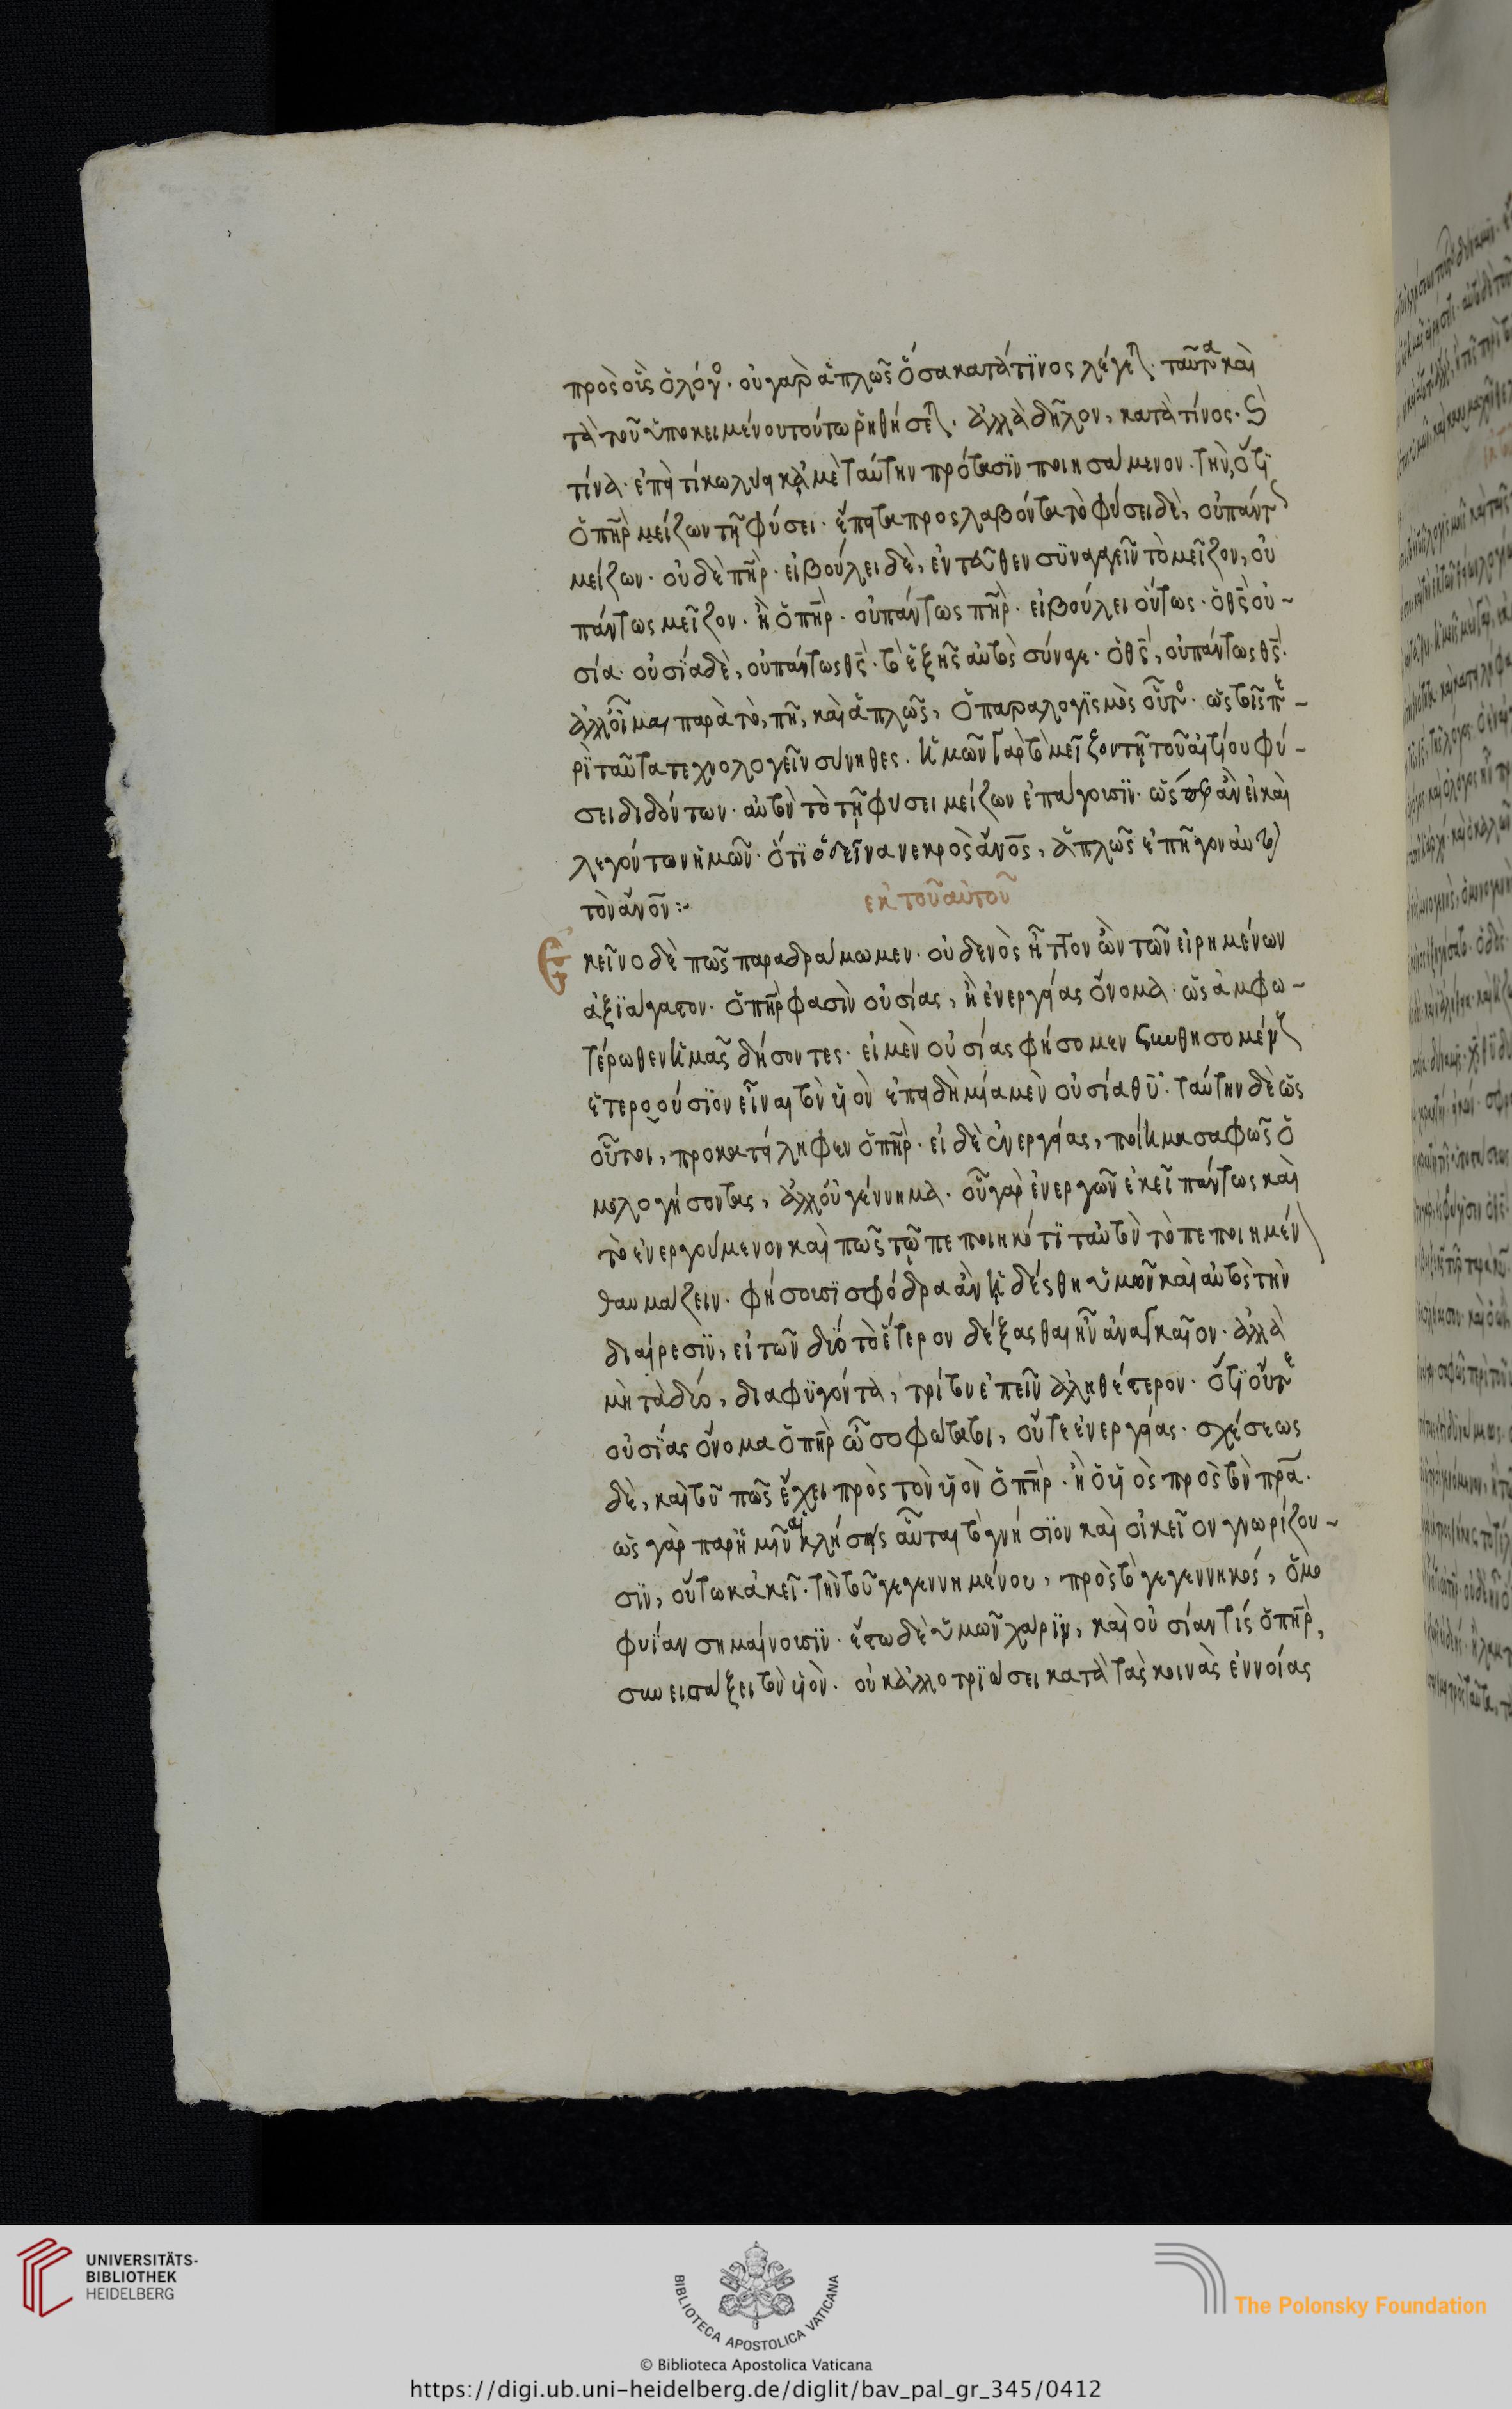 πρὸς οἷς ὁ λόγος. οὐ γὰρ ἁπλῶς ὅσα κατά τινος λέγεται. ταῦτα καὶ
τὰ τοῦ ὑποκειμένου τούτω ῥηθήσεται. ἀλλὰ δῆλον, κατὰ τίνος. καὶ
τίνα. ἐπεὶ τί κωλύει κἀμὲ ταύτην πρότασιν ποιησάμενον. τὴν, ὅτι
ὁ πηρ μείζων τῆ φύσει. ἔπειτα προσλαβόντα τὸ φύσει δὲ, οὐ πάντως
μείζων. οὐδὲ πηρ. εἰ βούλει δὲ, ἐντεῦθεν συναγαγεῖν τὸ μεῖζον, οὐ
πάντως μεῖζον. ἢ ὁ πηρ. οὐ πάντως πηρ. εἰ βούλει οὕτως. ὁ θς οὐ-
σία. οὐσία δὲ, οὐ πάντως θς. τὸ ἑξῆς αὐτὸς σύναγε. ὁ θς, οὐ πάντως θς.
ἀλλ' οἶμαι παρὰ τὸ, πῆ, καὶ ἁπλῶς, ὁ παραλογισμὸς οὗτος. ὡς τοῖς πε-
ρὶ ταῦτα τεχνολογεῖν σύνηθες. ἡμῶν γὰρ τὸ μεῖζον τῆ τοῦ αἰτίου φύ-
σει διδόντων. αὐτοὶ τὸ τῆ φύσει μείζων ἐπάγουσιν. ὥσπερ ἂν εἰ καὶ
λεγόντων ἡμῶν. ὅτι ὁ δεῖνα νεκρὸς ἄνος, ἁπλῶς ἐπῆγον αὐτοὶ
τὸν ἄνον:~
ἐκ τοῦ αὐτοῦ
Ἐκεῖνο δὲ πῶς παραδράμωμεν. οὐδενὸς ἧττον ὂν τῶν εἰρημένων
ἀξιάγαστον. ὁ πηρ φασὶν οὐσίας, ἢ ἐνεργείας ὄνομα. ὡς ἀμφω-
τέρωθεν ἡμᾶς δήσοντες. εἰ μὲν οὐσίας φήσομεν συνθησομένους
ἑτεροούσιον εἶναι τὸν υἱὸν ἐπειδὴ μία μὲν οὐσία θυ. ταύτην δὲ ὡς
οὗτοι, προκατείληφεν ὁ πηρ. εἰ δὲ ἐνεργείας, ποίημα σαφῶς ὁ
μολογήσοντας, ἀλλ' οὐ γέννημα. οὗ γὰρ ἐνεργῶν ἐκεῖ πάντως καὶ
τὸ ἐνεργούμενον καὶ πῶς τῶ πεποιηκότι ταὐτὸν τὸ πεποιημένον
θαυμάζειν. φήσουσι σφόδρα ἂν ἠδέσθην ὑμῶν καὶ αὐτὸς τὴν
διαίρεσιν, εἰ τῶν δύο τὸ ἕτερον δέξασθαι ἦν ἀναγκαῖον. ἀλλὰ
μὴ τὰ δύο, διαφυγόντα, τρίτον εἰπεῖν ἀληθέστερον. ὅτι οὔτε
οὐσίας ὄνομα ὁ πηρ ὦ σοφώτατοι, οὔτε ἐνεργείας. σχέσεως
δὲ, καὶ τοῦ πῶς ἔχει πρὸς τὸν υἱὸν ὁ πηρ. ἢ ὁ υἱὸς πρὸς τὸν πρα.
ὡς γὰρ παρ' ἡμῖν αἱ κλήσεις αὗται τὸ γνήσιον καὶ οἰκεῖον γνωρίζου-
σιν, οὕτω κἀκεῖ. τὴν τοῦ γεγεννημένου, πρὸς τὸ γεγεννηκός, ὁμο
φυΐαν σημαίνουσιν. ἔστω δὲ ὑμῶν χάριν, καὶ οὐσίαν τίς ὁ πηρ,
συνεισάξει τὸν υἱὸν. οὐκ ἀλλοτριώσει κατὰ τὰς κοινὰς ἐννοίας
UNIVERSITÄTS-
BIBLIOTHEK
HEIDELBERG
BIBLIOTECA APOSTOLICA VATICANA
The Polonsky Foundation
© Biblioteca Apostolica Vaticana
https://digi.ub.uni-heidelberg.de/diglit/bav_pal_gr_345/0412